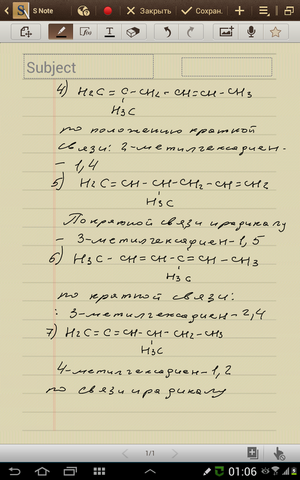 S Note
Закрыть
Сохран.
Subject
4) H2C = C - CH2 - CH = CH - CH3
H3C
по положению кратной
связи: 2-метилгексадиен-
- 1,4
5) H2C = CH - CH - CH2 - CH = CH2
H3C
По кратной связи и радикалу
- 3-метилгексадиен-1,5
6) H3C - CH = CH - C = CH - CH3
H3C
по кратной связи:
: 3-метилгексадиен-2,4
7) H2C = C = CH - CH - CH2 - CH3
H3C
4-метилгексадиен-1,2
по связи и радикалу
1/1
01:06